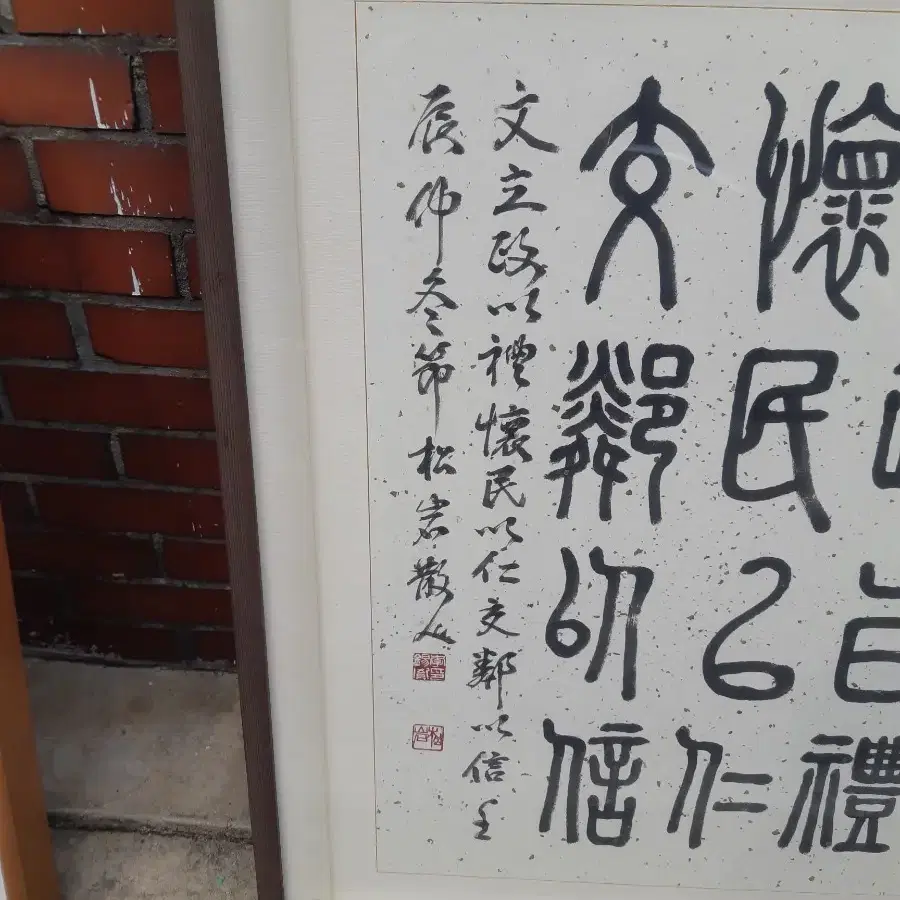 禮
懷民以仁
交鄰以信
文立政以禮懷民以仁交鄰以信壬
辰仲冬節松岩散人